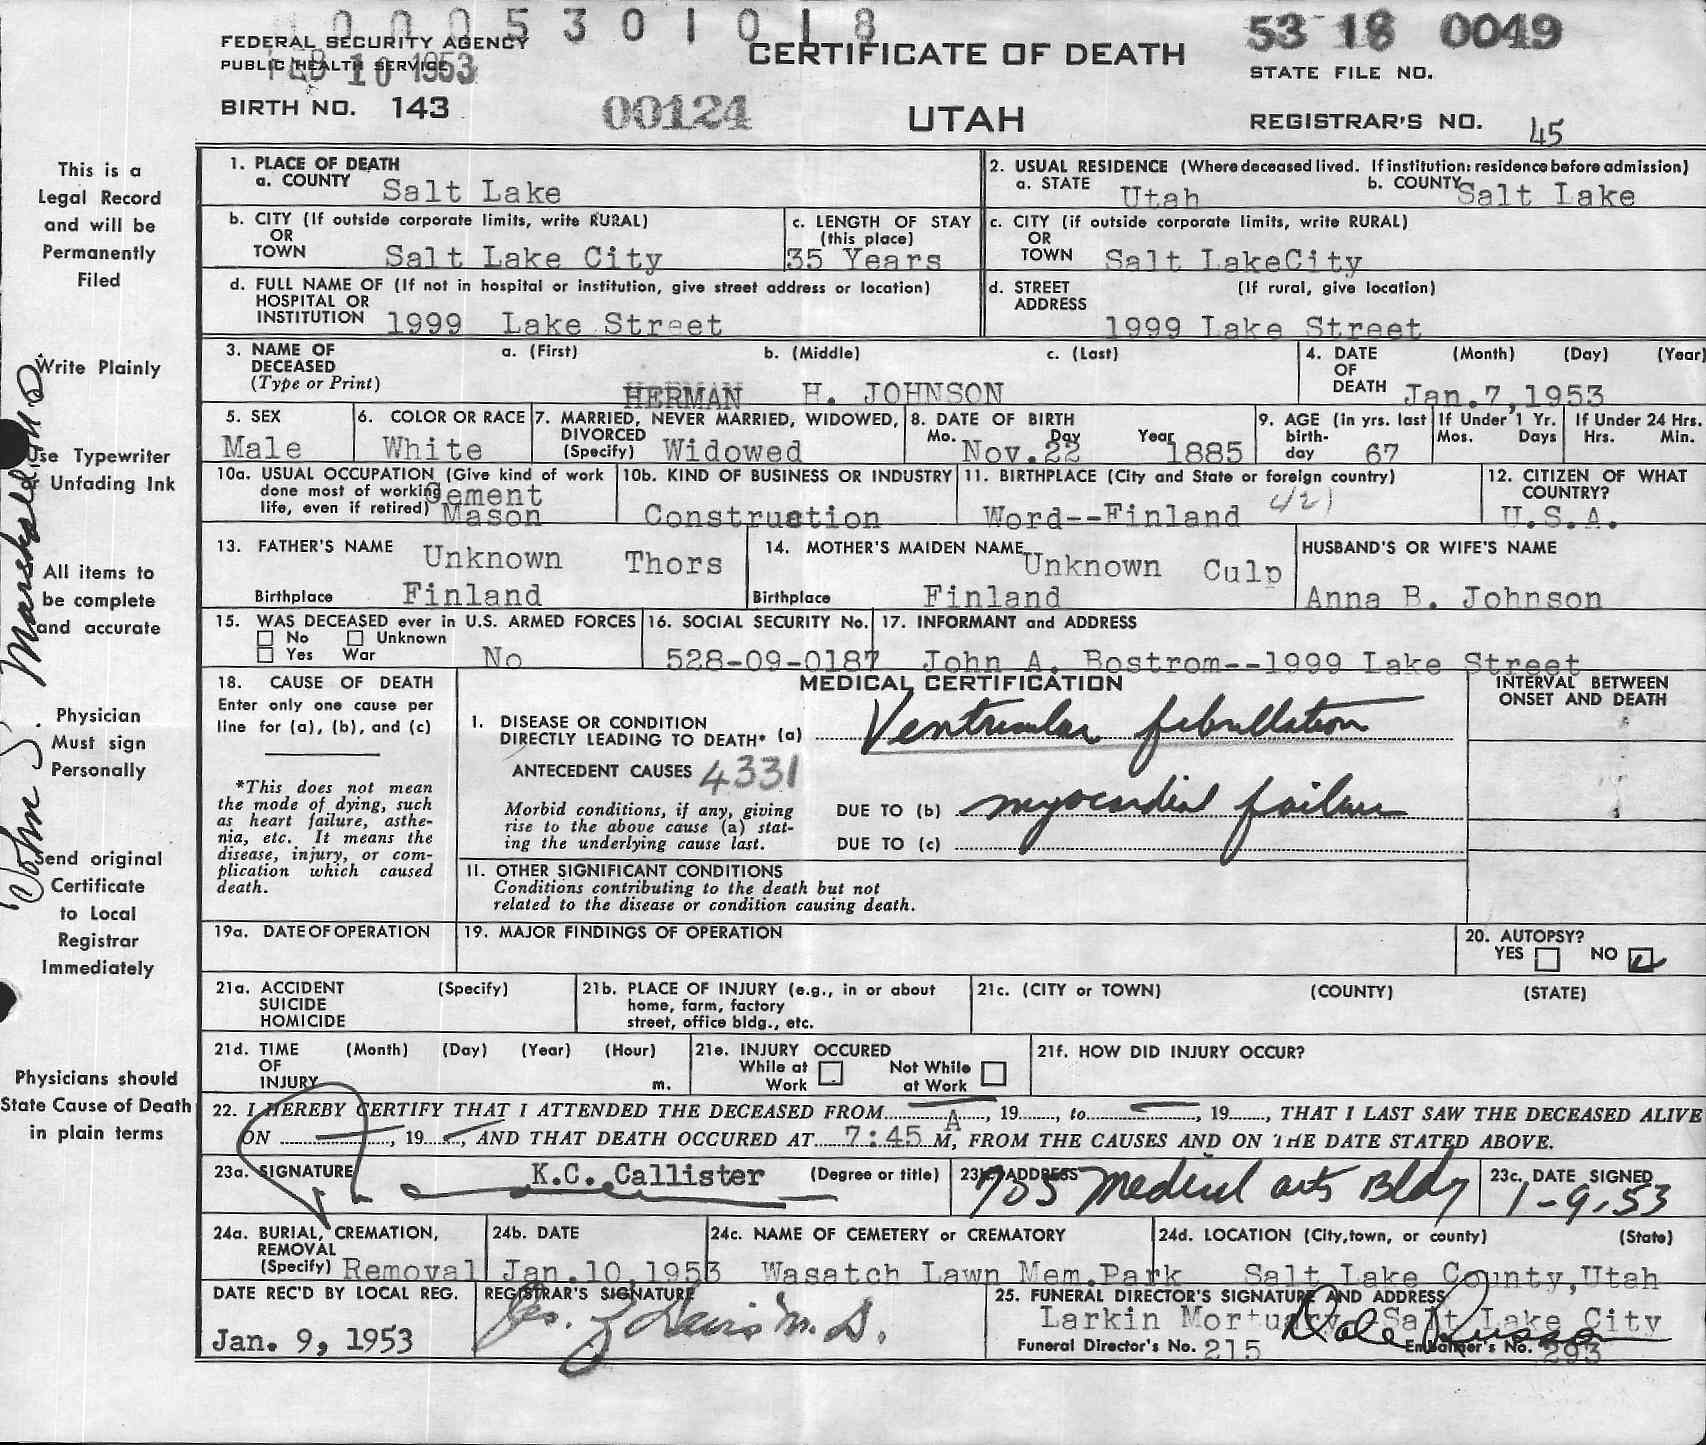 0005301018
53 18 0049
FEDERAL SECURITY AGENCY
PUBLIC HEALTH SERVICE
FEB 10 1953
CERTIFICATE OF DEATH
STATE FILE NO.
BIRTH NO. 143
00124
UTAH
REGISTRAR'S NO. 45
This is a
Legal Record
and will be
Permanently
Filed
Write Plainly
Use Typewriter
Unfading Ink
All items to
be complete
and accurate
Physician
Must sign
Personally
Send original
Certificate
to Local
Registrar
Immediately
Physicians should
State Cause of Death
in plain terms
John S. Marshall M.D.
1. PLACE OF DEATH
a. COUNTY Salt Lake
2. USUAL RESIDENCE (Where deceased lived. If institution: residence before admission)
a. STATE Utah b. COUNTY Salt Lake
b. CITY (If outside corporate limits, write RURAL)
OR
TOWN Salt Lake City
c. LENGTH OF STAY
(this place)
35 Years
c. CITY (if outside corporate limits, write RURAL)
OR
TOWN Salt LakeCity
d. FULL NAME OF (If not in hospital or institution, give street address or location)
HOSPITAL OR
INSTITUTION 1999 Lake Street
d. STREET (If rural, give location)
ADDRESS
1999 Lake Street
3. NAME OF a. (First) b. (Middle) c. (Last)
DECEASED
(Type or Print) HERMAN H. JOHNSON
4. DATE (Month) (Day) (Year)
OF
DEATH Jan.7,1953
5. SEX
Male
6. COLOR OR RACE
White
7. MARRIED, NEVER MARRIED, WIDOWED,
DIVORCED
(Specify) Widowed
8. DATE OF BIRTH
Mo. Day Year
Nov.22 1885
9. AGE (in yrs. last
birth-
day 67
If Under 1 Yr.
Mos. Days
If Under 24 Hrs.
Hrs. Min.
10a. USUAL OCCUPATION (Give kind of work
done most of working
life, even if retired) Cement
Mason
10b. KIND OF BUSINESS OR INDUSTRY
Construction
11. BIRTHPLACE (City and State or foreign country)
Word--Finland 421
12. CITIZEN OF WHAT
COUNTRY?
U.S.A.
13. FATHER'S NAME Unknown Thors
Birthplace Finland
14. MOTHER'S MAIDEN NAME Unknown Culp
Birthplace Finland
HUSBAND'S OR WIFE'S NAME
Anna B. Johnson
15. WAS DECEASED ever in U.S. ARMED FORCES
No Unknown
Yes War No
16. SOCIAL SECURITY No.
528-09-0187
17. INFORMANT and ADDRESS
John A. Bostrom--1999 Lake Street
18. CAUSE OF DEATH
Enter only one cause per
line for (a), (b), and (c)
*This does not mean
the mode of dying, such
as heart failure, asthe-
nia, etc. It means the
disease, injury, or com-
plication which caused
death.
MEDICAL CERTIFICATION
INTERVAL BETWEEN
ONSET AND DEATH
1. DISEASE OR CONDITION
DIRECTLY LEADING TO DEATH* (a) Ventricular fibrillation
ANTECEDENT CAUSES 4331
Morbid conditions, if any, giving
rise to the above cause (a) stat-
ing the underlying cause last.
DUE TO (b) myocardial failure
DUE TO (c)
11. OTHER SIGNIFICANT CONDITIONS
Conditions contributing to the death but not
related to the disease or condition causing death.
19a. DATE OF OPERATION
19. MAJOR FINDINGS OF OPERATION
20. AUTOPSY?
YES NO
21a. ACCIDENT (Specify)
SUICIDE
HOMICIDE
21b. PLACE OF INJURY (e.g., in or about
home, farm, factory
street, office bldg., etc.
21c. (CITY or TOWN) (COUNTY) (STATE)
21d. TIME (Month) (Day) (Year) (Hour)
OF
INJURY m.
21e. INJURY OCCURED
While at Not While
Work at Work
21f. HOW DID INJURY OCCUR?
22. I HEREBY CERTIFY THAT I ATTENDED THE DECEASED FROM, 19, to, 19, THAT I LAST SAW THE DECEASED ALIVE
ON, 19, AND THAT DEATH OCCURED AT 7:45 A M, FROM THE CAUSES AND ON THE DATE STATED ABOVE.
23a. SIGNATURE K.C. Callister (Degree or title)
23b. ADDRESS 705 Medical arts Bldg
23c. DATE SIGNED
1-9-53
24a. BURIAL, CREMATION,
REMOVAL
(Specify) Removal
24b. DATE
Jan.10,1953
24c. NAME OF CEMETERY or CREMATORY
Wasatch Lawn Mem.Park
24d. LOCATION (City, town, or county) (State)
Salt Lake County,Utah
DATE REC'D BY LOCAL REG.
Jan. 9, 1953
REGISTRAR'S SIGNATURE
25. FUNERAL DIRECTOR'S SIGNATURE AND ADDRESS
Larkin Mortuary Salt Lake City
Funeral Director's No. 215 Embalmer's No. 293